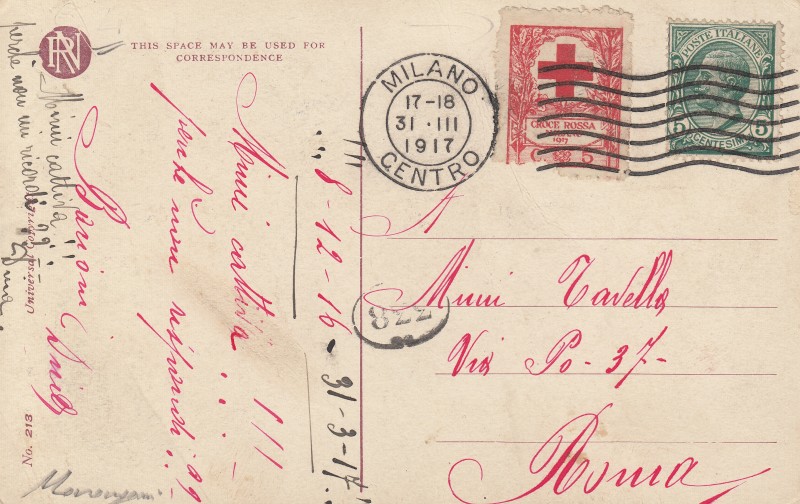 RN
THIS SPACE MAY BE USED FOR
CORRESPONDENCE
Mimi cattiva!!!
perchè non mi ricordi??
Mimi cattiva...!!!
perchè non rispondi??
Bacioni
!!!8-12-16-31-3-17!!
No. 213
MILANO
17-18
31 · III
1917
CENTRO
CROCE ROSSA
1917
C. 5
POSTE ITALIANE
5 CENTESIMI 5
228
A
Mimi Tavella
Via Po-37-
Roma